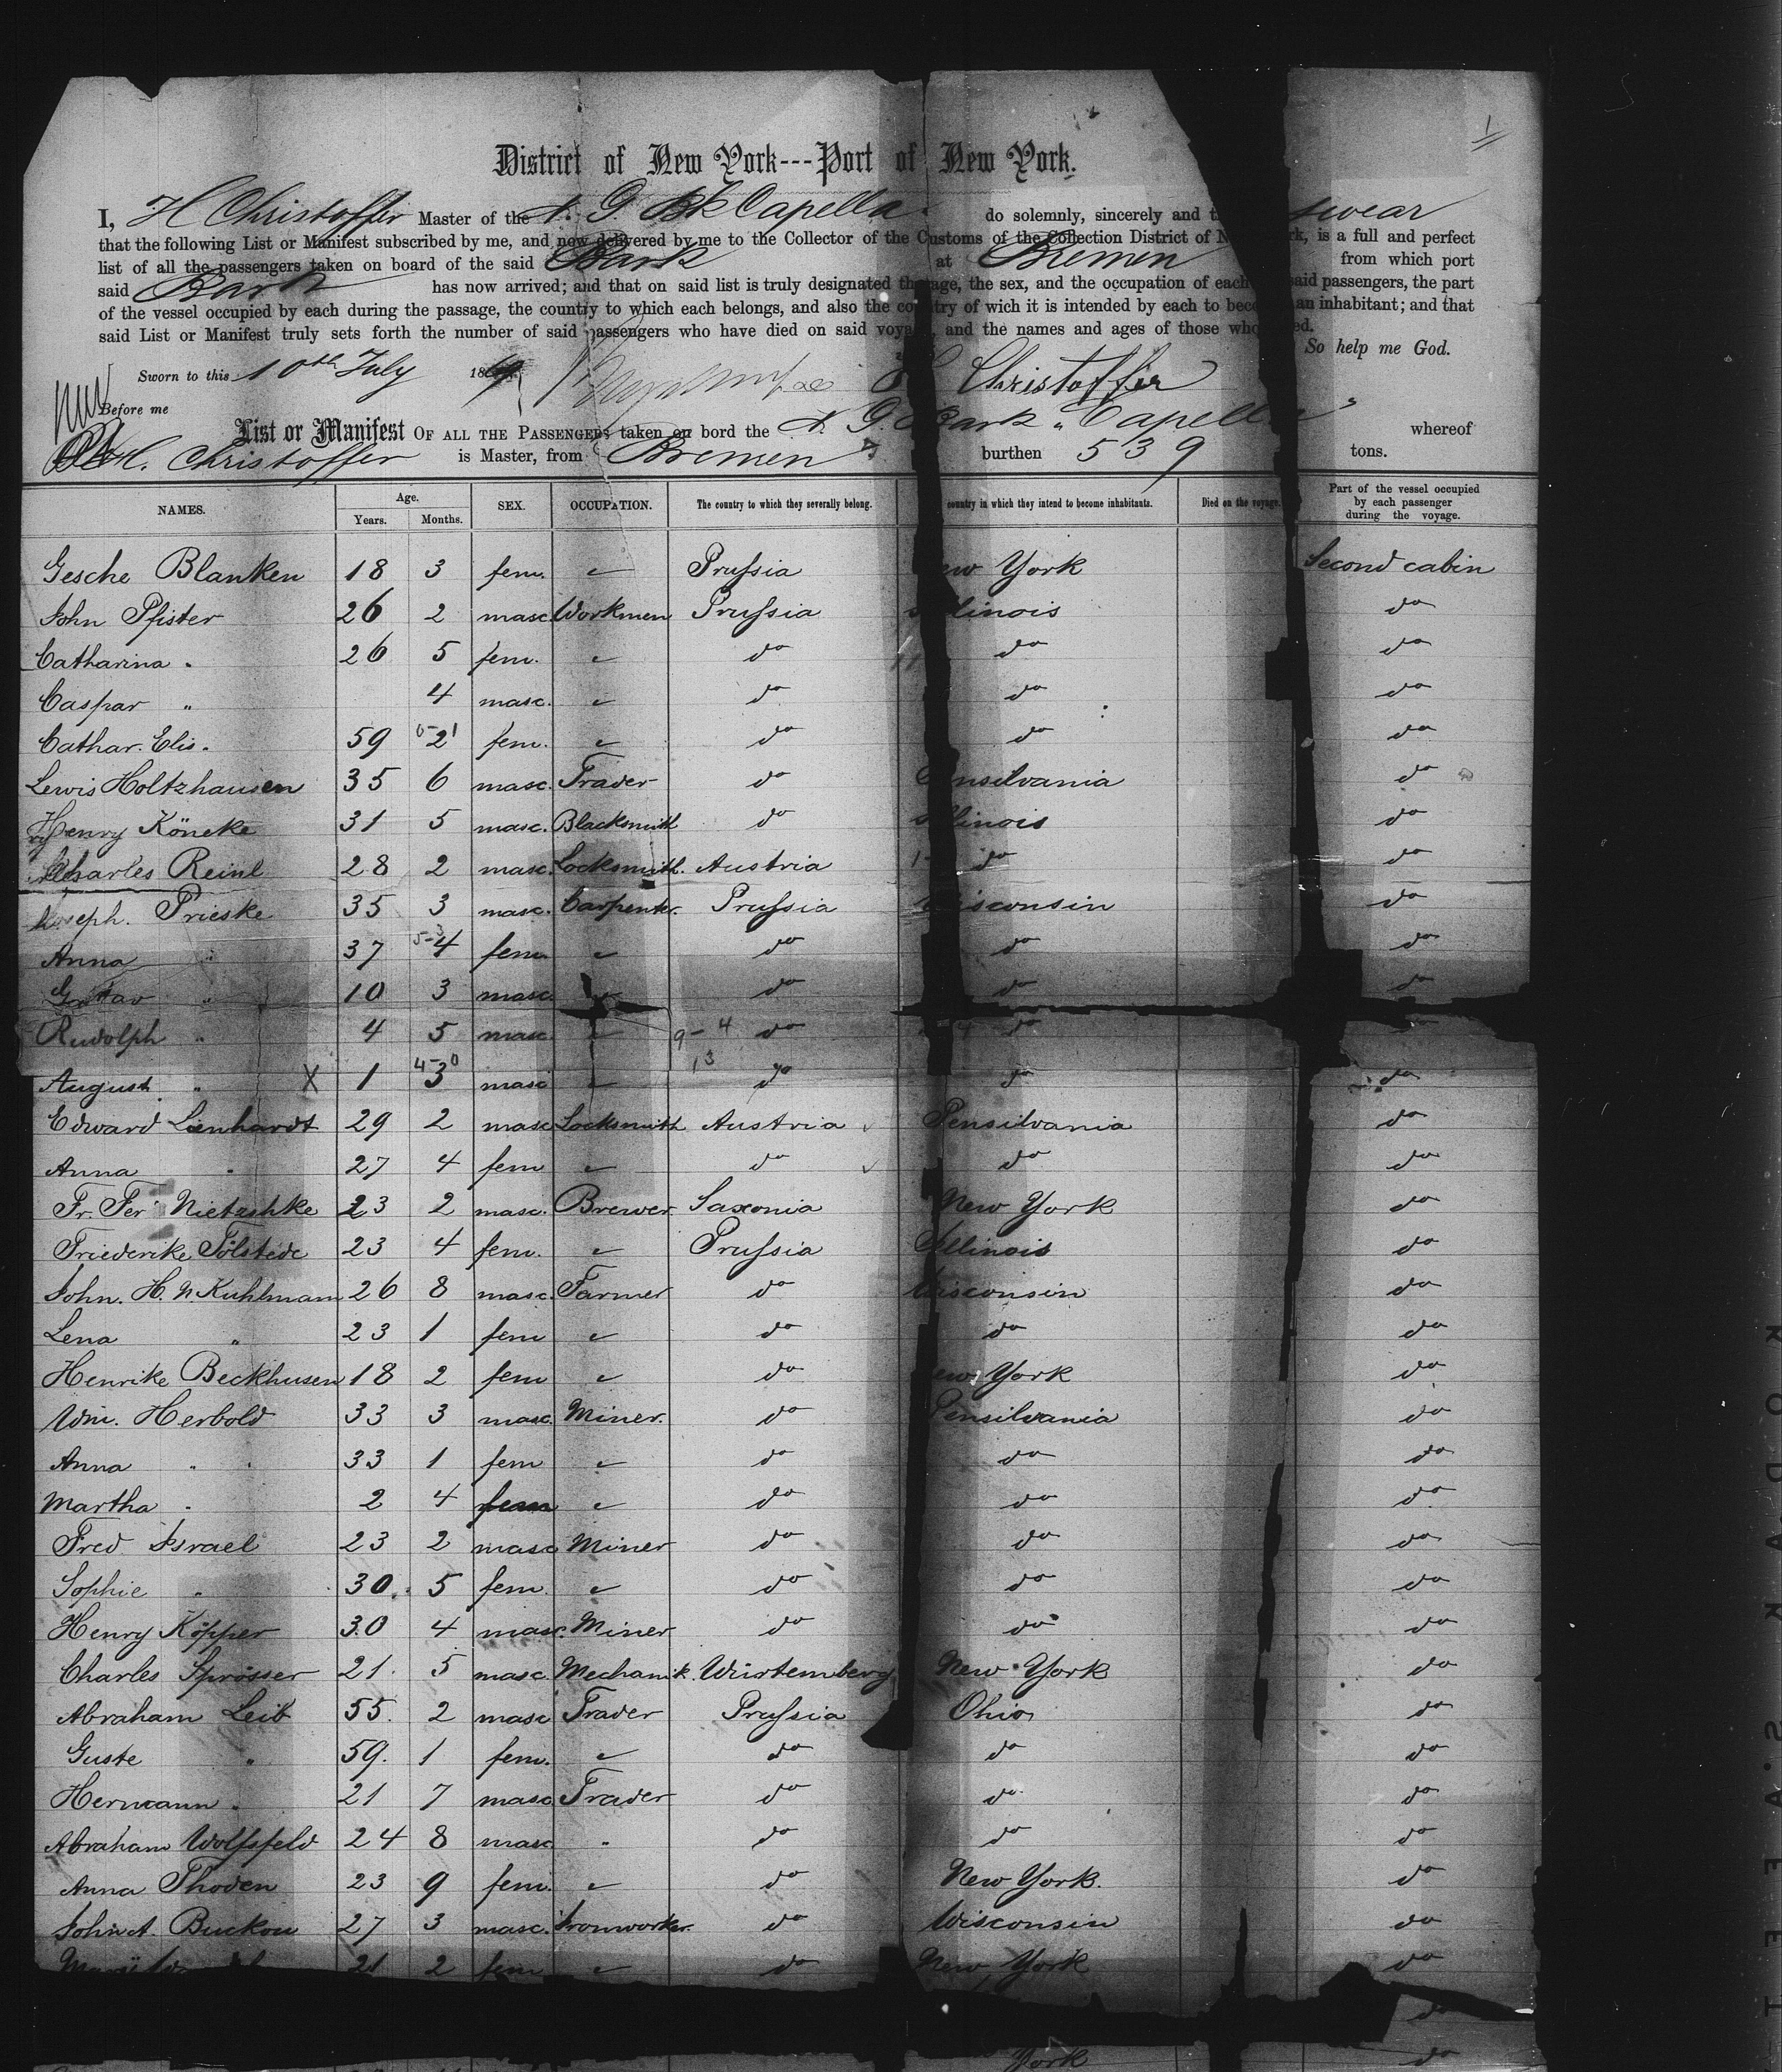 1
District of New York---Port of New York.
I, H Christoffer Master of the N. G. Bk Capella. do solemnly, sincerely and swear
that the following List or Manifest subscribed by me, and now delivered by me to the Collector of the Customs of the Collection District of is a full and perfect
list of all the passengers taken on board of the said Bark at Bremen from which port
said Bark has now arrived; and that on said list is truly designated the age, the sex, and the occupation of each said passengers, the part
of the vessel occupied by each during the passage, the country to which each belongs, and also the country of wich it is intended by each to an inhabitant; and that
said List or Manifest truly sets forth the number of said passengers who have died on said and the names and ages of those who
So help me God.
Sworn to this 10th July 186 H Christoffer
Before me
List or Manifest OF ALL THE PASSENGERS taken on bord the N. G. Bark "Capella" whereof
H. Christoffer is Master, from Bremen burthen 539 tons.
NAMES. Age. Years. Months. SEX. OCCUPATION. The country to which they severally belong. country in which they intend to become inhabitants. Died on the voyage. Part of the vessel occupied by each passenger during the voyage.
Gesche Blanken 18 3 fem. " Prussia New York Second cabin
John Pfister 26 2 masc Workmen Prussia Illinois do
Catharina " 26 5 fem. " do do do
Caspar " 4 masc. " do do do
Cathar. Elis. 59 2 fem. " do do do
Lewis Holtzhausen 35 6 masc. Trader do Pensilvania do
Henry Köneke 31 5 masc. Blacksmith do Illinois do
Charles Reinl 28 2 masc. Locksmith. Austria do do
Joseph. Prieske 35 3 masc. Carpenter. Prussia Wisconsin do
Anna " 37 4 fem " do do do
Gustav " 10 3 masc " do do do
Rudolph " 4 5 masc " 9-4 do do do
August " X 1 3 masc " do do do
Edward Lienhardt 29 2 masc Locksmith Austria Pensilvania do
Anna " 27 4 fem " do do do
Fr. Fer Nietzshke 23 2 masc. Brewer Saxonia New York do
Friederike Tölstede 23 4 fem. " Prussia Illinois do
John. H. N. Kuhlmann 26 8 masc. Farmer do Wisconsin do
Lena " 23 1 fem " do do do
Henrike Beckhusen 18 2 fem " do New York do
Wm. Herbold 33 3 masc. Miner. do Pensilvania do
Anna " 33 1 fem " do do do
Martha " 2 4 fem " do do do
Fred Israel 23 2 masc Miner do do do
Sophie " 30 5 fem. " do do do
Henry Köpper 30 4 masc. Miner do do do
Charles Sprösser 21 5 masc. Mechanik. Würtemberg New York do
Abraham Leib 55. 2 masc Trader Prussia Ohio do
Guste " 59. 1 fem. " do do do
Hermann " 21 7 masc Trader do do do
Abraham Wolfsfeld 24 8 masc " do do do
Anna Thoden 23 9 fem. " do New York. do
John A. Buckou 27 3 masc. Ironworker. do Wisconsin do
21 2 fem " do New York do
do
York do